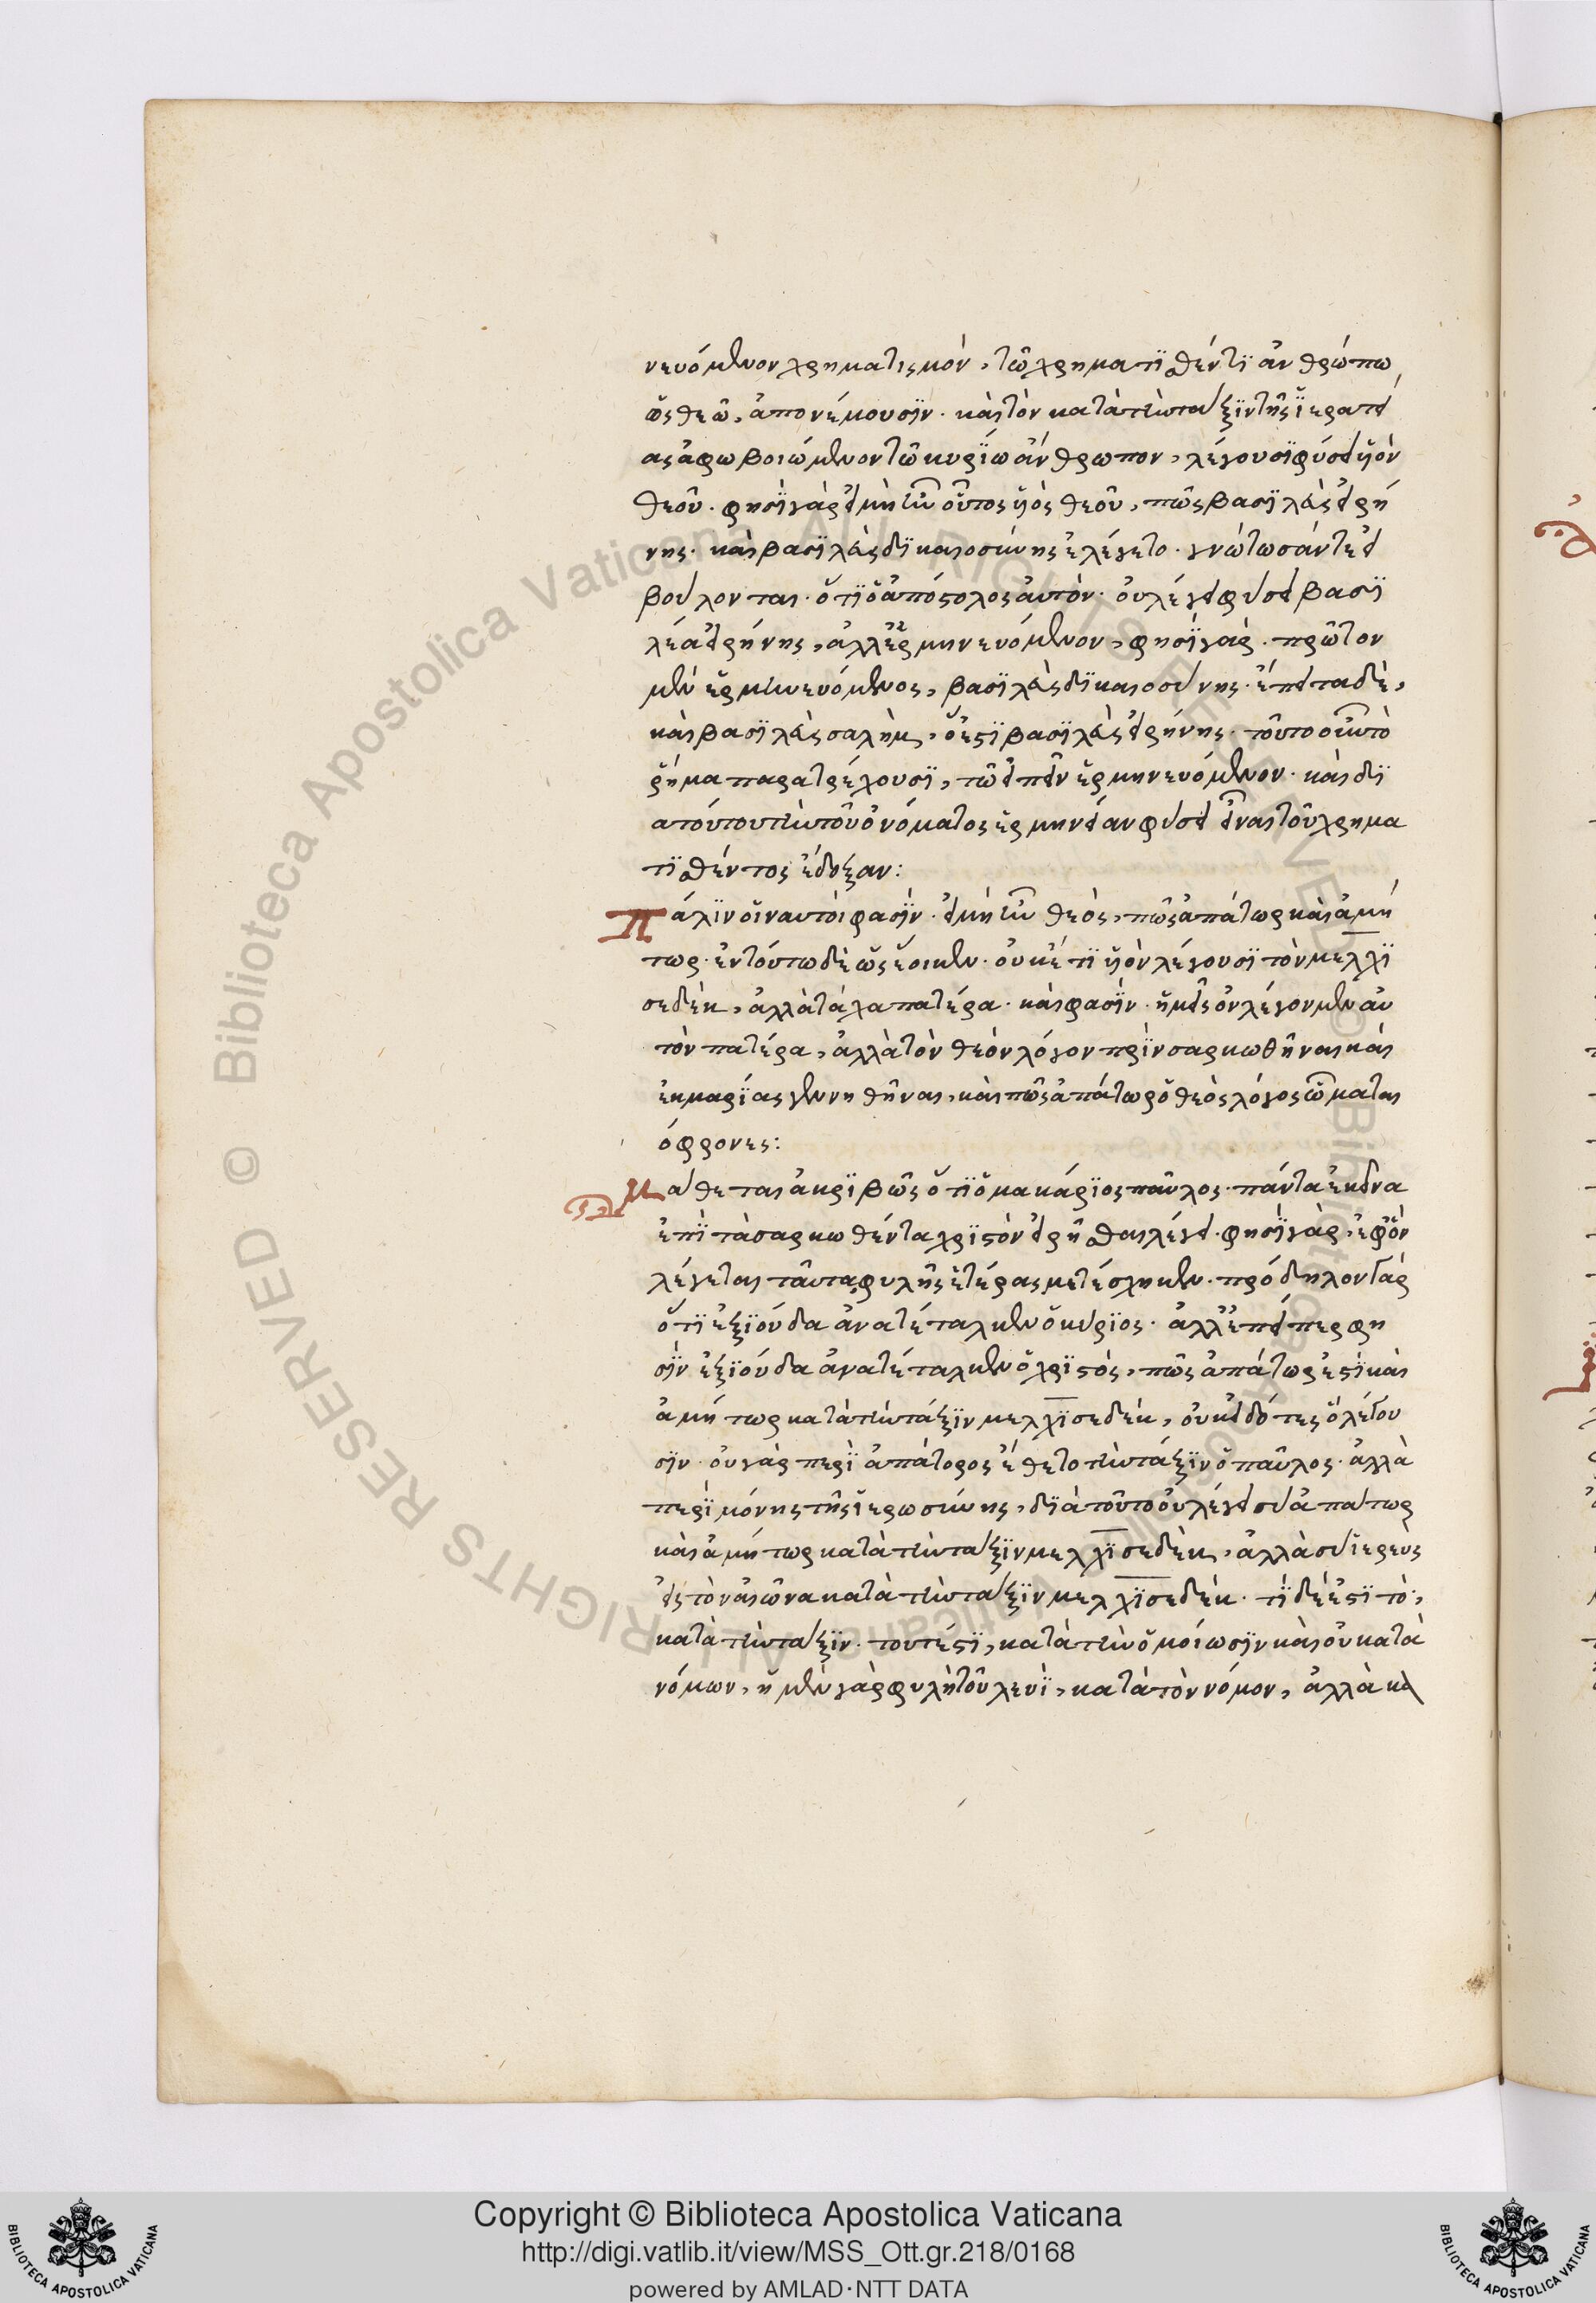 νευόμενον χρηματισμὸν, τῶ χρηματϊσθέντϊ ἀνθρώπω
ὡς θεῶ, ἀπονέμουσϊν. καὶ τὸν κατὰ τὴν τάξϊν τῆς ἱερατεί
ας ἀφωμοιωμένον τῶ κυρίω ἄνθρωπον, λέγουσϊ φύσει υἱὸν
θεοῦ. φησὶ γὰρ εἰ μὴ ἦν οὗτος υἱὸς θεοῦ, πῶς βασϊλεὺς εἰρή
νης. καὶ βασϊλεὺς δϊκαιοσύνης ἐλέγετο. γνώτωσάν τε εἰ
βούλονται. ὅτϊ ὁ ἀπόστολος αὐτὸν. οὐ λέγει φύσει βασϊ
λέα εἰρήνης, ἀλλ' ἑρμηνευόμενον, φησὶ γὰρ. πρῶτον
μὲν ἑρμηνευόμενος, βασϊλεὺς δϊκαιοσύνης. ἔπειτα δὲ,
καὶ βασϊλεὺς σαλὴμ, ὅ ἐστϊ βασϊλεὺς εἰρήνης. τοῦτο οὖν τὸ
ῥῆμα παρατρέχουσϊ, τῶ εἰπεῖν ἑρμηνευόμενον. καὶ δϊ
α τούτου τὴν τοῦ ὀνόματος ἑρμηνείαν φύσει εἶναι τοῦ χρημα
τϊσθέντος ἔδοξαν:
Πάλϊν οἱ ναυτοί φασϊν. εἰ μὴ ἦν θεὸς, πῶς ἀπάτωρ καὶ ἀμή
τωρ. ἐν τούτω δὲ ὡς ἔοικεν. οὐκ ἔτϊ υἱὸν λέγουσϊ τὸν μελχϊ
σεδὲκ, ἀλλὰ τάχα πατέρα. καὶ φασϊν. ἡμεῖς οὐ λέγομεν αὐ
τὸν πατέρα, ἀλλὰ τὸν θεὸν λόγον πρϊν σαρκωθῆναι καὶ
ἐκ μαρίας γεννηθῆναι, καὶ πῶς ἀπάτωρ ὁ θεὸς λόγος ὦ μαται
όφρονες:
Μάθεται ἀκρϊβῶς ὅτϊ ὁ μακάριος παῦλος. πάντα ἐκεῖνα
ἐπὶ τὰ σαρκωθέντα χρϊστὸν εἰρῆσθαι λέγει. φησὶ γὰρ, ἐφ' ὃν
λέγεται ταῦτα φυλῆς ἑτέρας μετέσχηκεν. πρόδηλον γὰρ
ὅτϊ ἐξ ϊούδα ἀνατέταλκεν ὁ κύριος. ἀλλ' ἐπείπερ φη
σϊν ἐξ ϊούδα ἀνατέταλκεν ὁ χρϊστὸς, πῶς ἀπάτωρ ἐστϊ καὶ
ἀμήτωρ κατὰ τὴν τάξϊν μελχϊσεδὲκ, οὐκ εἰδότες ὃ λέγου
σϊν. οὐ γὰρ περὶ ἀπάτορος ἔθετο τὴν τάξϊν ὁ παῦλος. ἀλλὰ
περὶ μόνης τῆς ἱερωσύνης, δϊὰ τοῦτο οὐ λέγει σὺ ἀπάτωρ
καὶ ἀμήτωρ κατὰ τὴν τάξϊν μελχϊσεδὲκ, ἀλλὰ σὺ ἱερεὺς
εἰς τὸν αἰῶνα κατὰ τὴν τάξϊν μελχϊσεδὲκ. τί δέ ἐστϊ τὸ,
κατὰ τὴν τάξϊν. τουτέστϊ, κατὰ τὴν ὁμοίωσϊν καὶ οὐ κατὰ
νόμων, ἡ μὲν γὰρ φυλὴ τοῦ λευϊ, κατὰ τὸν νόμον, ἀλλὰ καὶ
Copyright © Biblioteca Apostolica Vaticana
http://digi.vatlib.it/view/MSS_Ott.gr.218/0168
powered by AMLAD·NTT DATA